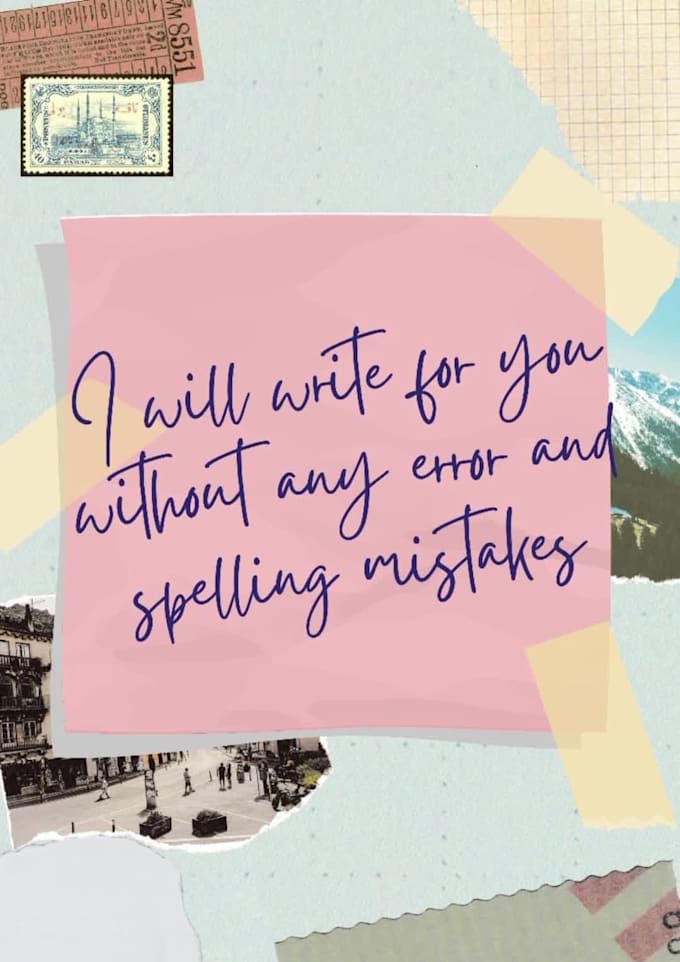 8551
2d
I will write for you
without any error and
spelling mistakes